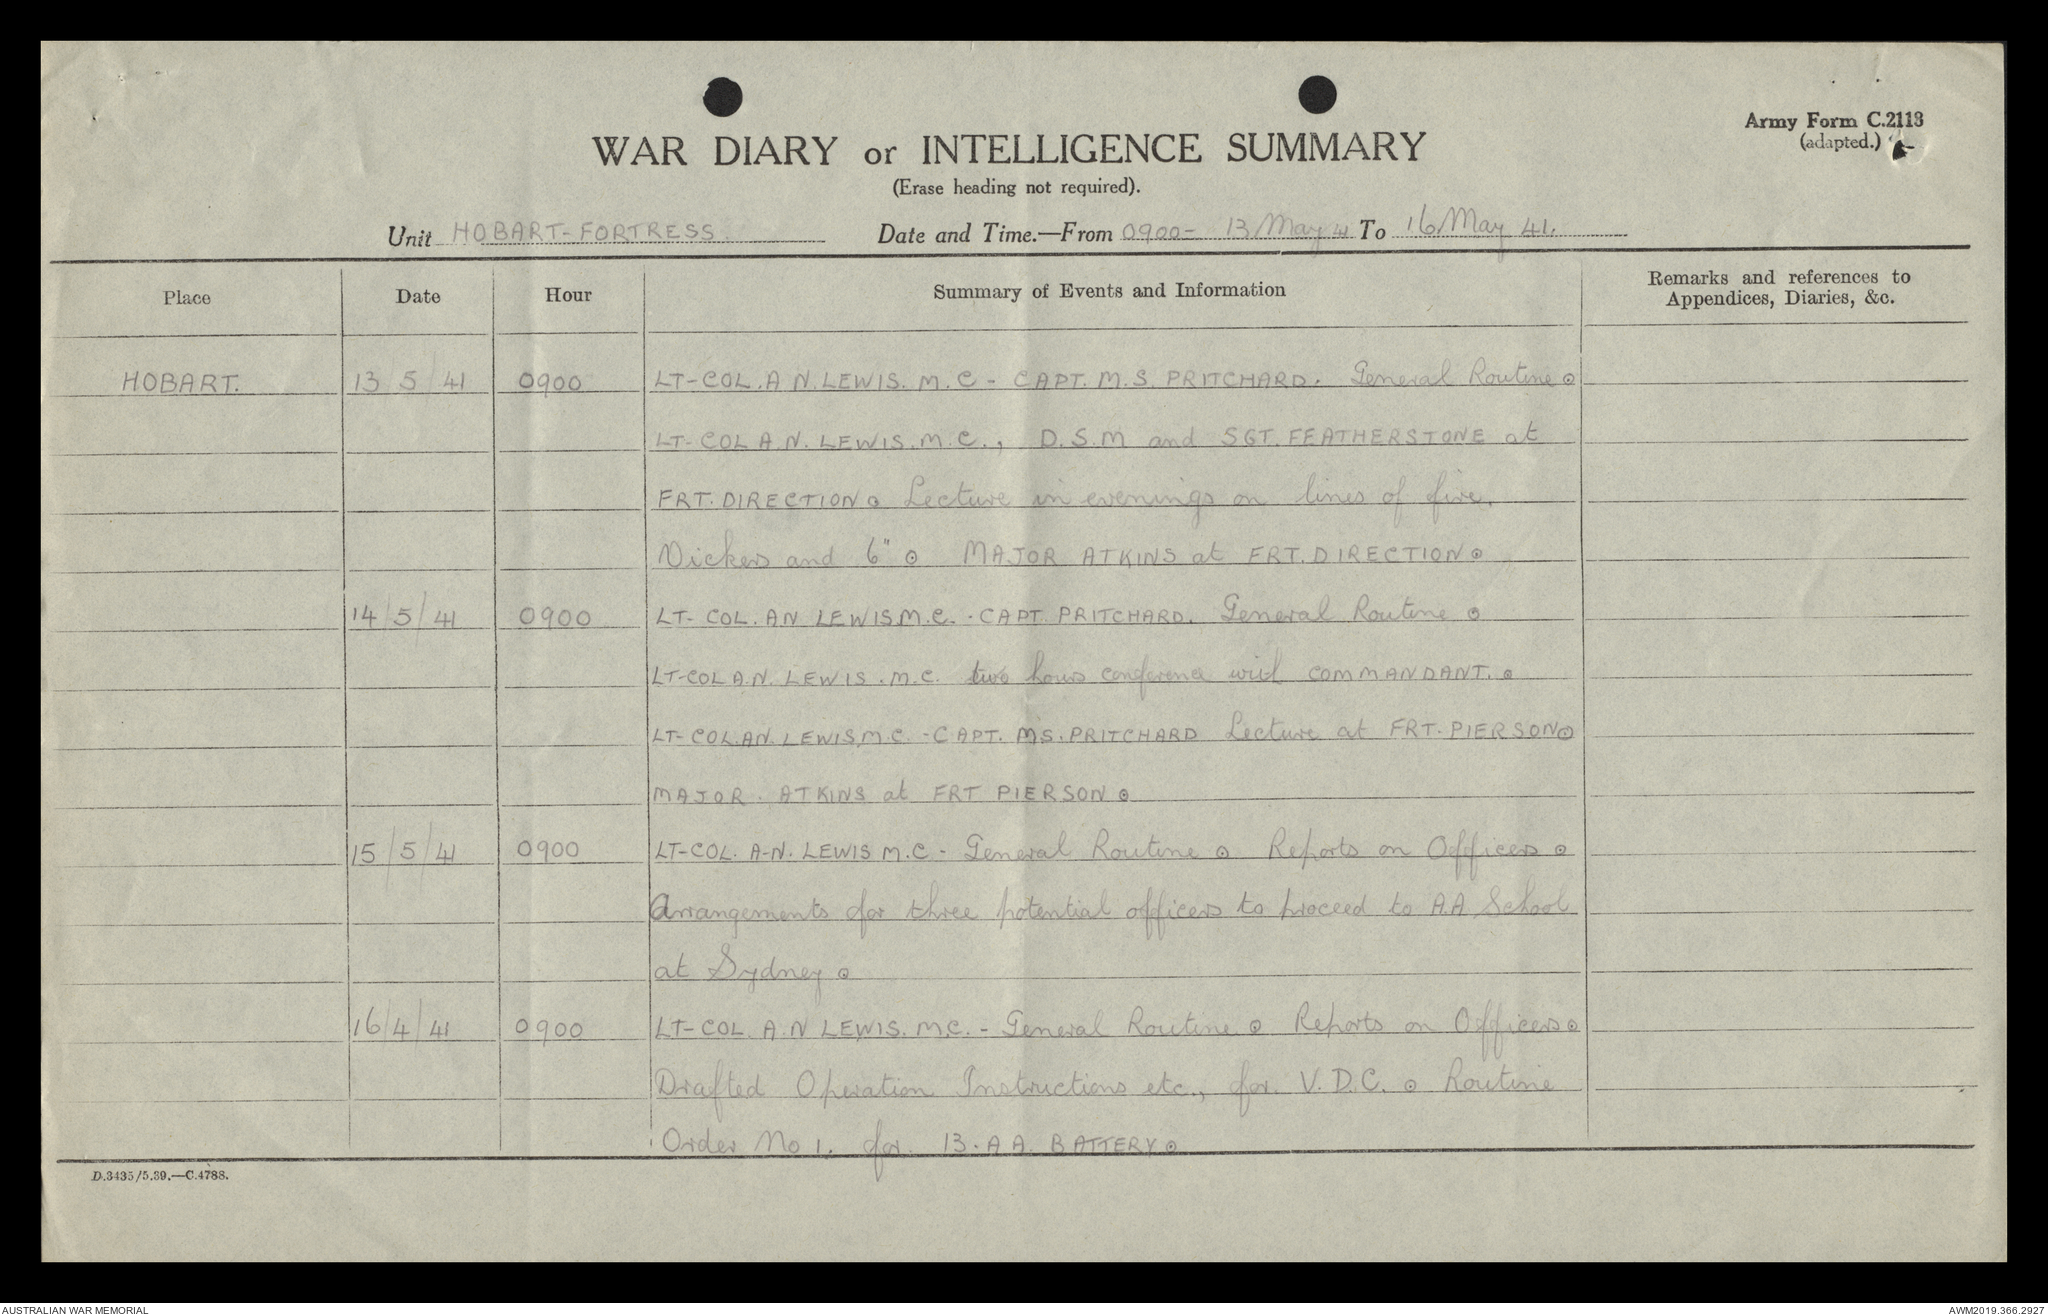 Army Form C.2113
(adapted.)
WAR DIARY or INTELLIGENCE SUMMARY
(Erase heading not required).
Unit HOBART-FORTRESS Date and Time.—From 0900- 13 May 41 To 16 May 41.
Place Date Hour Summary of Events and Information Remarks and references to
Appendices, Diaries, &c.
HOBART. 13/5/41 0900 LT-COL. A N. LEWIS. M.C - CAPT. M.S. PRITCHARD. General Routine ⊙
LT-COL A.N. LEWIS. M.C., D.S.M and SGT. FEATHERSTONE at
FRT. DIRECTION ⊙ Lecture in evenings on lines of fire.
Vickers and 6" ⊙ MAJOR ATKINS at FRT. DIRECTION ⊙
14/5/41 0900 LT- COL. A.N LEWIS M.C. - CAPT. PRITCHARD. General Routine ⊙
LT-COL A.N. LEWIS. M.C. two hours conference with COMMANDANT. ⊙
LT- COL. A.N. LEWIS, M.C. - CAPT. M.S. PRITCHARD Lecture at FRT. PIERSON ⊙
MAJOR. ATKINS at FRT PIERSON ⊙
15/5/41 0900 LT-COL. A-N. LEWIS M.C - General Routine ⊙ Reports on Officers ⊙
Arrangements for three potential officers to proceed to A.A School
at Sydney ⊙
16/4/41 0900 LT-COL. A.N LEWIS. M.C. - General Routine ⊙ Reports on Officers ⊙
Drafted Operation Instructions etc., for V.D.C. ⊙ Routine
Order No 1. for 13. A A. BATTERY ⊙
D.3435/5.39.—C.4788.
AUSTRALIAN WAR MEMORIAL AWM2019.366.2927